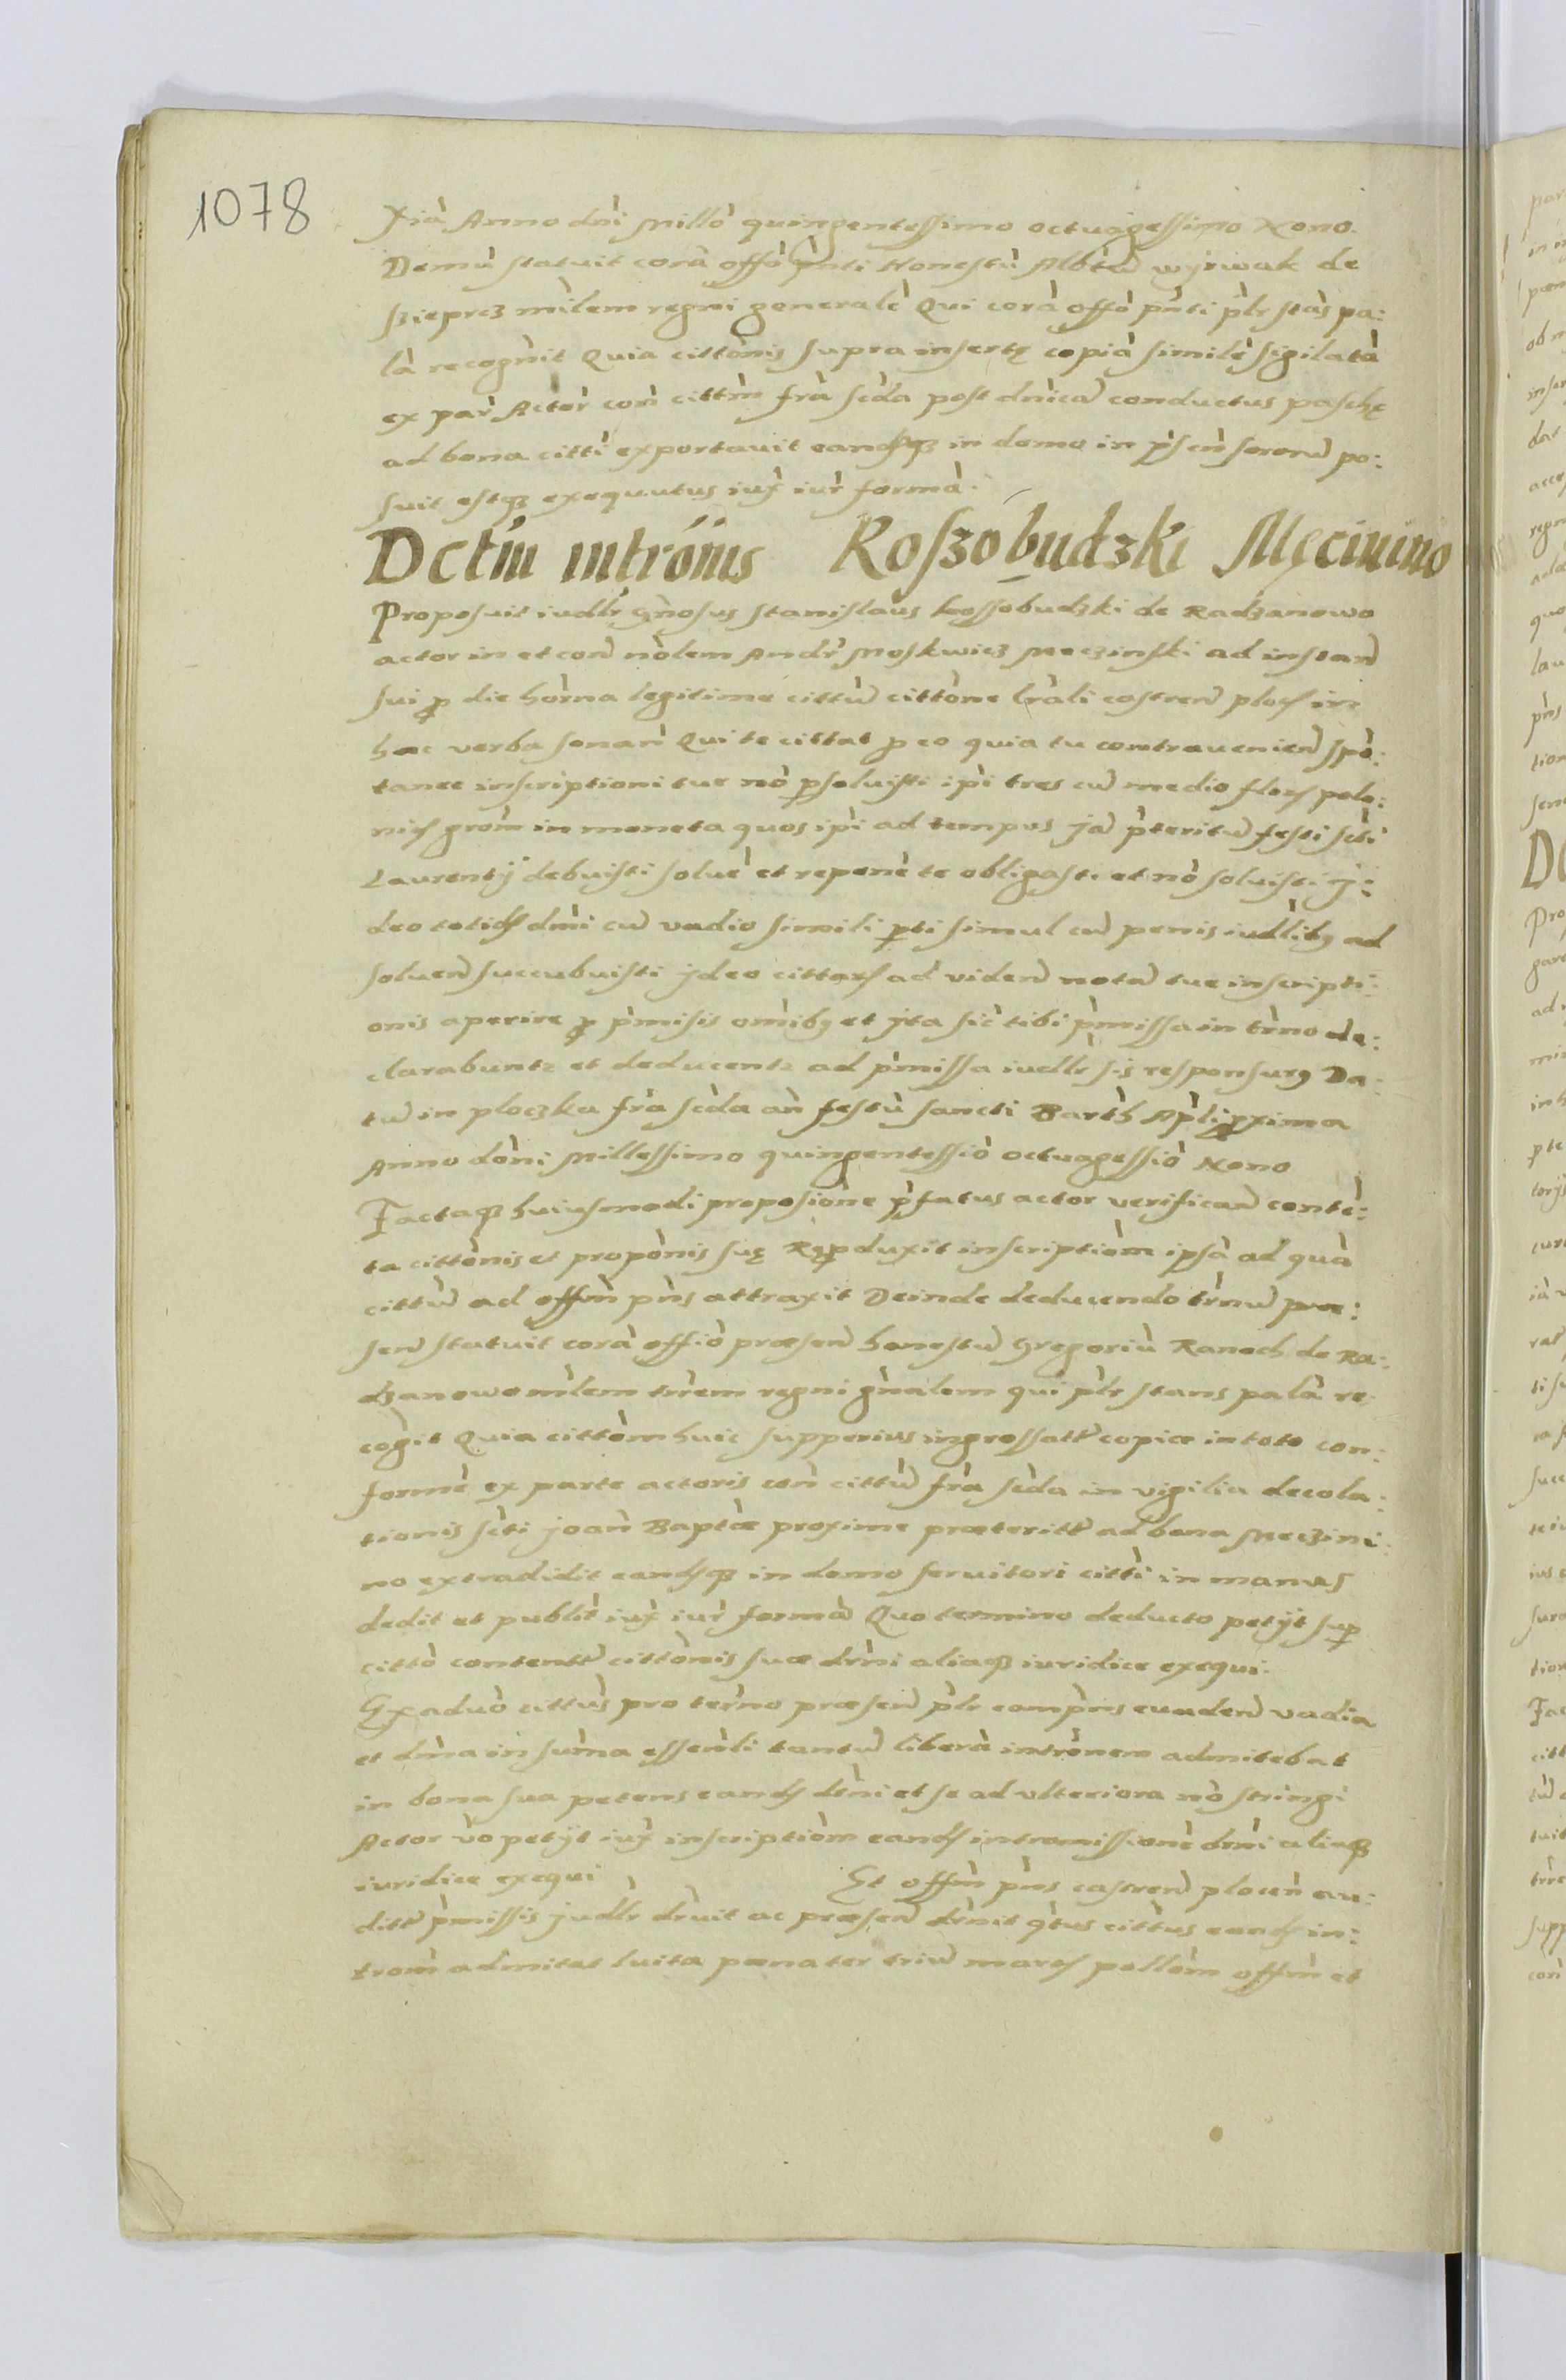 1078
xiã Anno dñi Millõ quingentessimo octuagessimo Nono.
Demũ statuit corã offõ pñti Honestũ Albtũ wyrwak de
Szieprcz milem regni generalẽ Qui corã offõ pñti plr stãs pa:
lã recognit Quia cittõnis supra insertę copiã similẽ sigilatã
ex par Actor con cittm fra scda post dnicã conductus paschę
ad bona citti exportauit eandq3 in domo in pscn sororũ po:
suit estq3 exequutus iux iur formã.
Dctm intrõnis Koszobudzki Męcinino
Proposuit iudlr gnosus Stanislaus Kossobudzki de Radzanowo
actor in et con nõlem Andr Moskwicz Meczinski ad instan
sui p die horna legitime cittũ cittõne lrali castren ploc in
hac verba sonan Qui te cittat p eo quia tu contrauenien spõ:
tanee inscriptioni tue nõ psoluisti ipi tres cũ medio flor polo:
nic grom in moneta quos ipi ad tempus jã pteritũ festi scti
Laurentij debuisti soluẽ et reponẽ te obligasti et nõ soluisti j:
deo totid dmi cũ vadio simili pti simul cũ penis iudlib9 ad
soluen succubuisti jdeo cittaris ad viden notã tue inscripti:
onis aperire p pmisis omib9 et jta sic tibi pmissa in trno de:
clarabunt et deducent ad pmissa iudlr sis responsur9 Da:
tũ in ploczko fra scda an festũ sancti Barth Apli pxima
Anno dõni Millessimo quingentessiõ octuagessiõ Nono
Factaq3 huiusmodi proposiõne pfatus actor verifican contẽ:
ta cittõnis et propõnis suę Repduxit inscriptiõm ipsã ad quã
cittũ ad offm pns attraxit Deinde deducendo trnũ prae:
sen statuit corã offiõ praesen honestũ Gregoriũ Kanoch de Ra:
dzanowo milem trrem regni gnalem qui plr stans palã re
cogit Quia cittõm huic supperius ingrossatt copiae in toto con:
formẽ ex parte actoris con cittũ fra scda in vigilia decola:
tionis scti joan Baptae proxime praeteritt ad bona Meczini:
no extradidit eandq3 in domo seruitori citti in manus
dedit et publit iux iur formã Quo termino deducto petijt sup
cittõ contentt cittõnis suae drni aliaq3 iuridice exequi.
Ex aduõ cittus pro terno praesen plr compns euaden vadia
et dma in suma essenli tantũ liberã intrõnem admitebat
in bona sua petens eand drni et se ad vlteriora nõ stringi
Actor vo petijt iux inscriptiõm eand intromissionẽ drni aliaq3
iuridice exequi Et offm pns castren plocen au:
ditt pmissis judlr druit ac praesen drnit qtus cittus eand in:
trom admitat luita paena ter triũ marc pollõm offm et